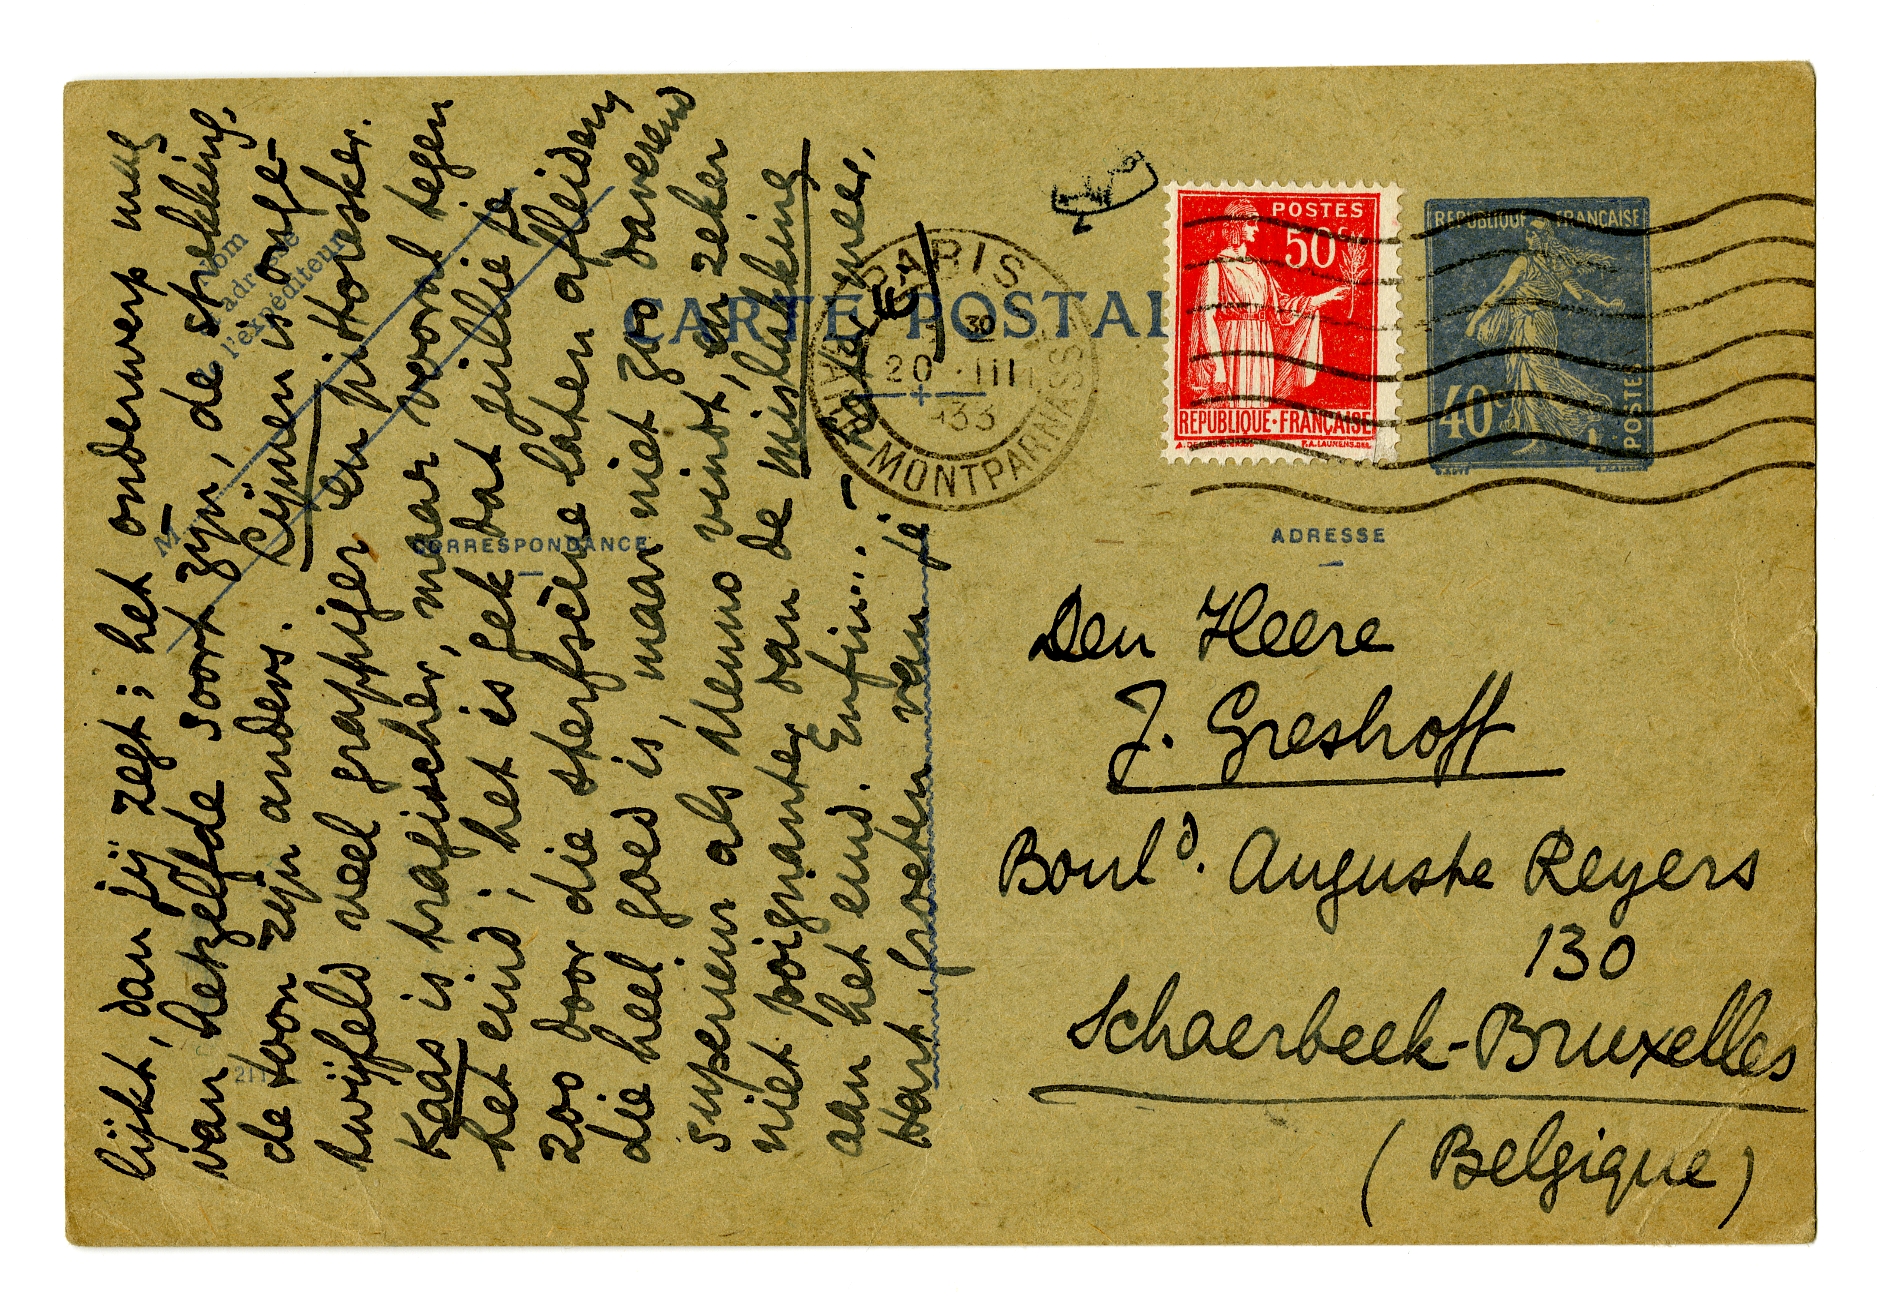 lijkt, dan jij zegt; het onderwerp mag
van hetzelfde soort zijn, de strekking,
de toon zijn anders. Lijmen is onge-
twijfeld veel grappiger en pittoresker.
Kaas is tragischer, maar vooral tegen
het eind; het is gek dat jullie je
zoo door die sterfscène laten afleiden,
die heel goed is, maar niet zoo daverend
superieur als Menno vindt, en zeker
niet poignanter dan de mislukking
aan het eind. Enfin... —
Hart. groeten van je
E.
Nom
adresse
l'expéditeur
M
CORRESPONDANCE
211
CARTE POSTAL
PARIS
30
20 · III
33
MONTPARNASSE
POSTES
50c
REPUBLIQUE·FRANÇAISE
REPUBLIQUE FRANÇAISE
40c
POSTE
ADRESSE
Den Heere
J. Greshoff
Boul<sup>d</sup>. Auguste Reyers
130
Schaerbeek-Bruxelles
(Belgique)